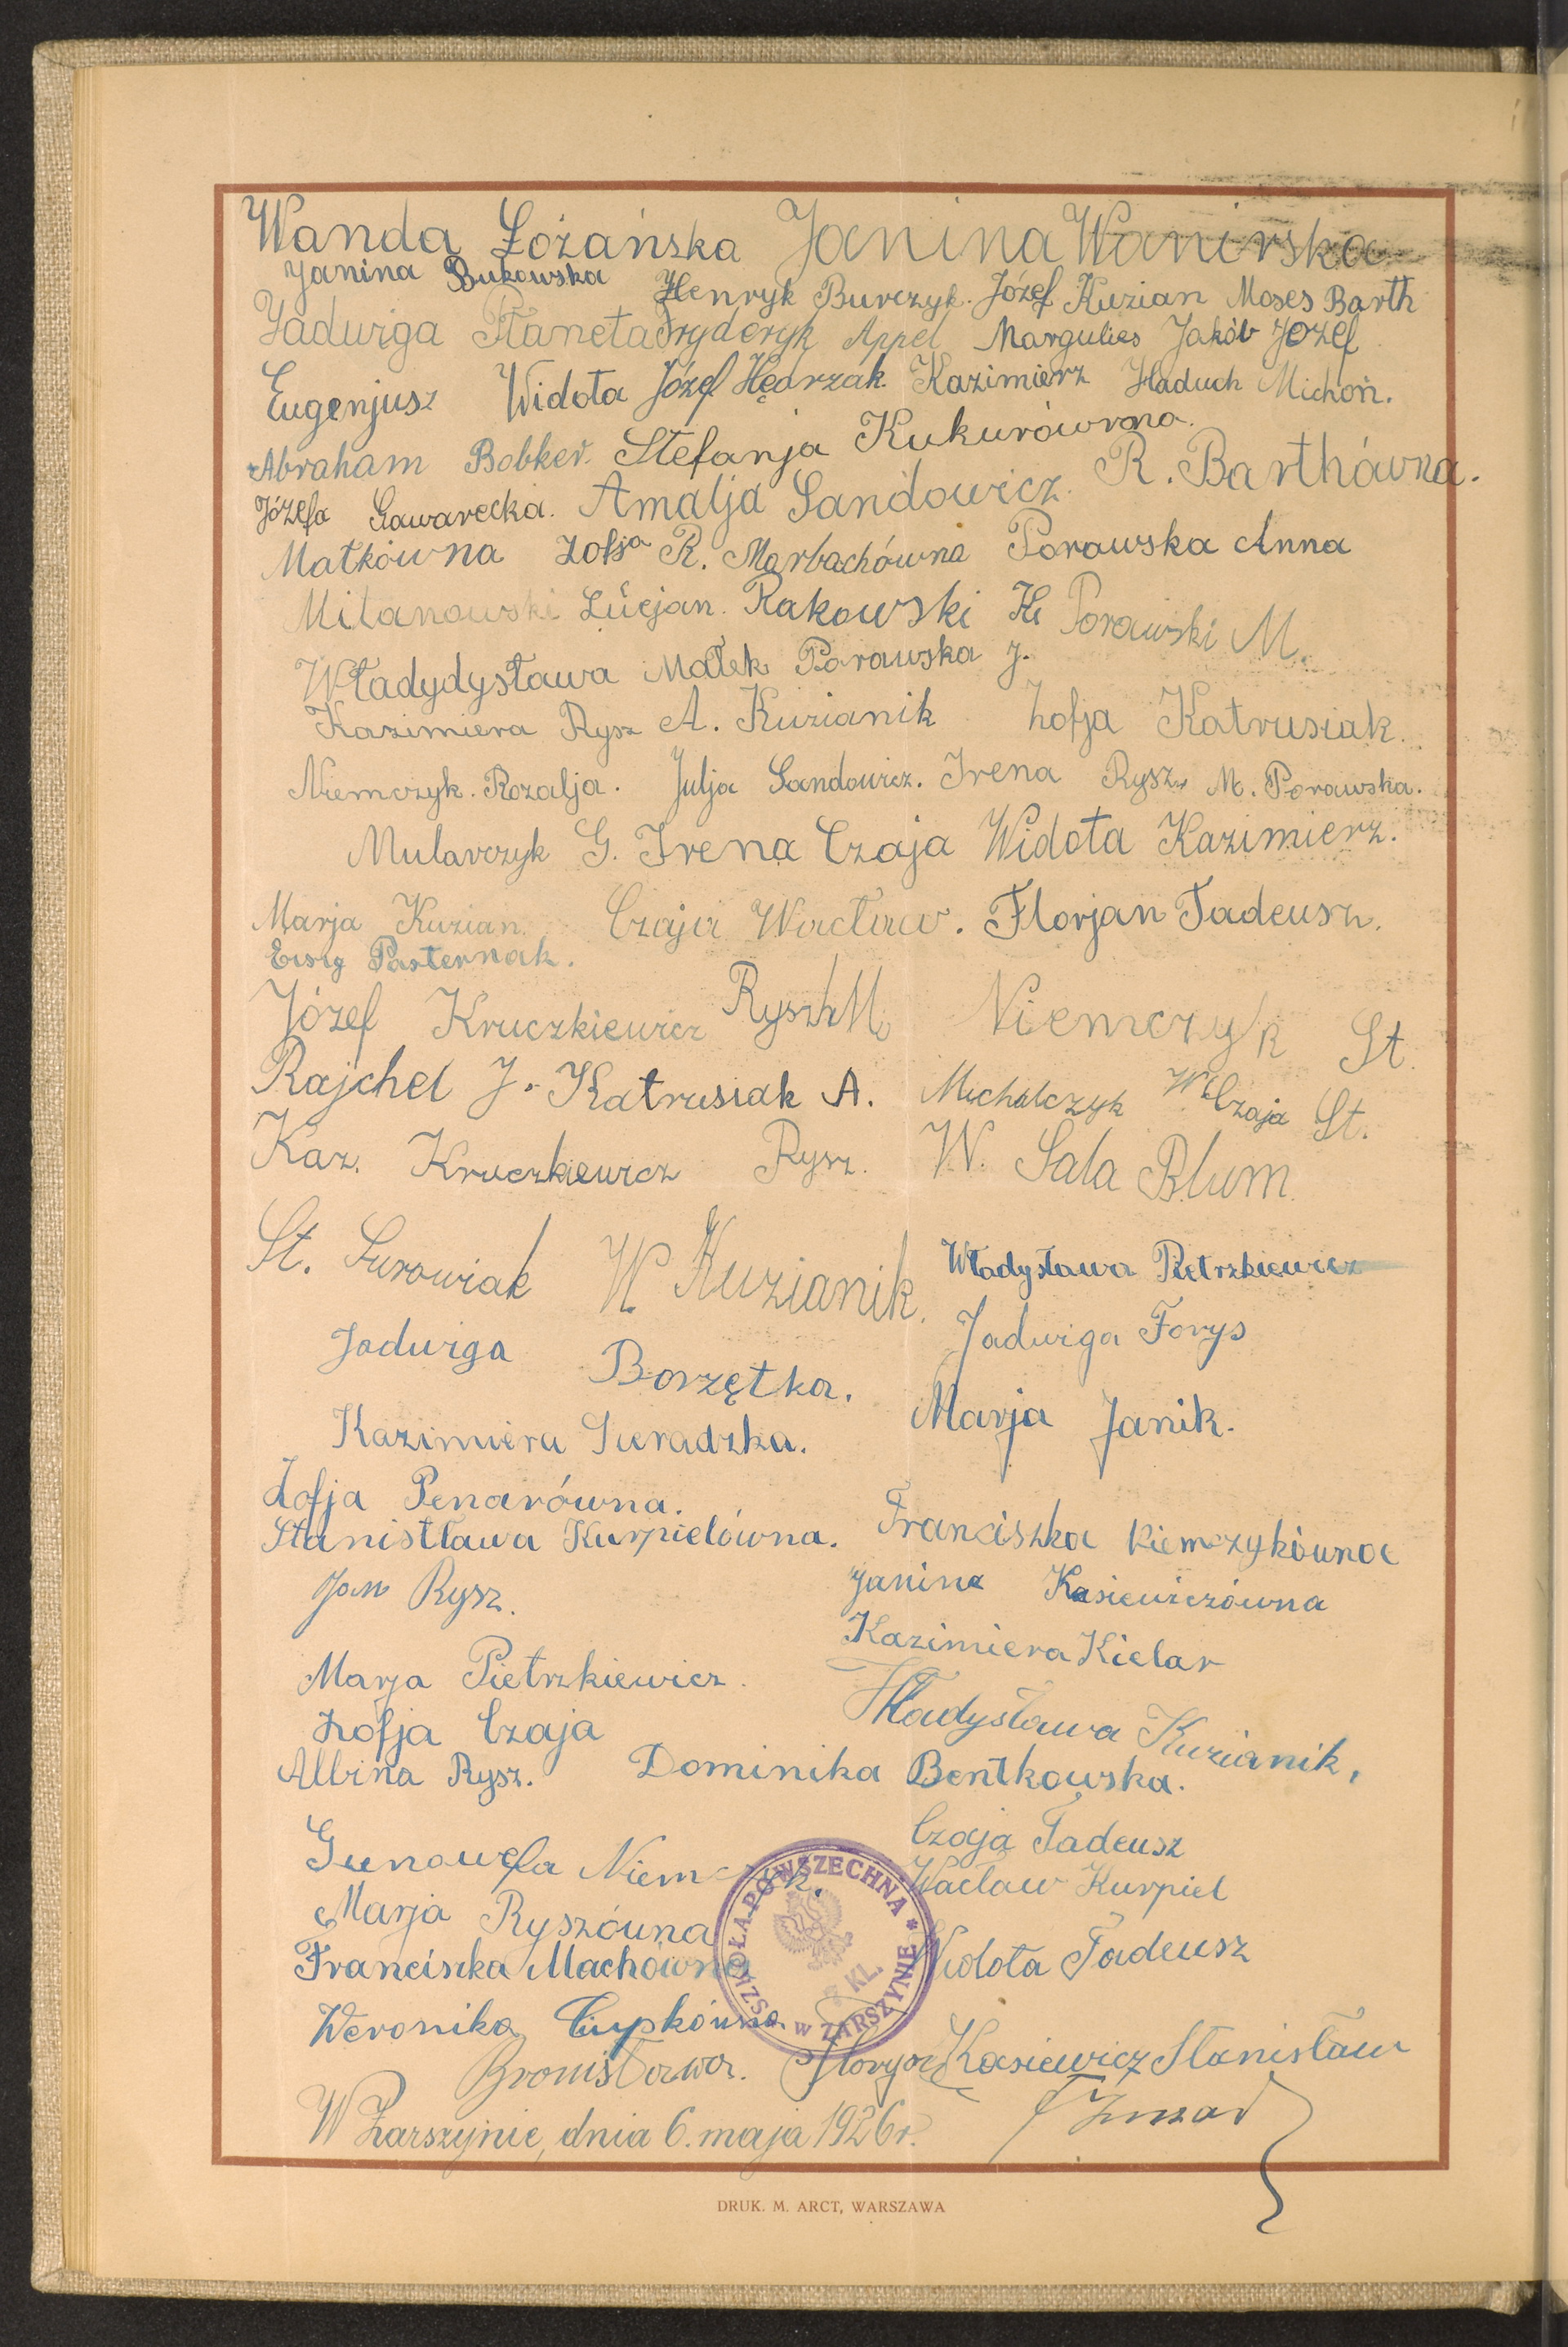 Wanda Łożańska Janina Wanirska
Janina Bukowska Henryk Burczyk. Józef Kuzian Moses Barth
Jadwiga Płaneta Fryderyk Appel Margulies Jakób Józef
Eugenjusz Widota Józef Hędrzak. Kazimierz Haduch Michoń.
Abraham Bobker. Stefanja Kukurówna.
Józefa Gawarecka. Amalja Sandowicz. R. Barthówna.
Matkówna Zofja R. Marbachówna Porawska Anna
Milanowski Lucjan. Rakowski K Porawski M.
Władydysława Małek Porawska J.
Kazimiera Rysz A. Kuzianik Zofja Katrusiak.
Niemczyk. Rozalja. Julja Sandowicz. Irena Rysz M. Porawska.
Mularczyk G. Irena Czaja Widota Kazimierz.
Marja Kuzian. Czaja Wacław. Florjan Tadeusz.
Eisig Pasternak.
Józef Kruczkiewicz Rysz M. Niemczyk St.
Rajchel J. Katrusiak A. Michalczyk W. Czaja St.
Kaz. Kruczkiewicz Rysz. W. Sala Blum.
St. Surowiak W. Kuzianik. Władysława Pietrzkiewicz
Jadwiga Borzętka. Jadwiga Forys
Kazimiera Sieradzka. Marja Janik.
Zofja Penarówna.
Stanistława Kurpielówna. Franciszka Niemczykówna
Jan Rysz. Janina Kasiewiczówna
Kazimiera Kielar
Marja Pietrzkiewicz.
Zofja Czaja Władysława Kuzianik,
Albina Rysz. Dominika Bentkowska.
Genowefa Niemczyk. Czaja Tadeusz
Wacław Kurpiel
Marja Ryszówna
Franciszka Machówna Widota Tadeusz
Weronika Cupkówna
Bronisława. Florjan Kasiewicz Stanisław
W Zarszynie, dnia 6. maja 1926 r.
SZKOŁA POWSZECHNA * w ZARSZYNIE
KL.
DRUK. M. ARCT, WARSZAWA